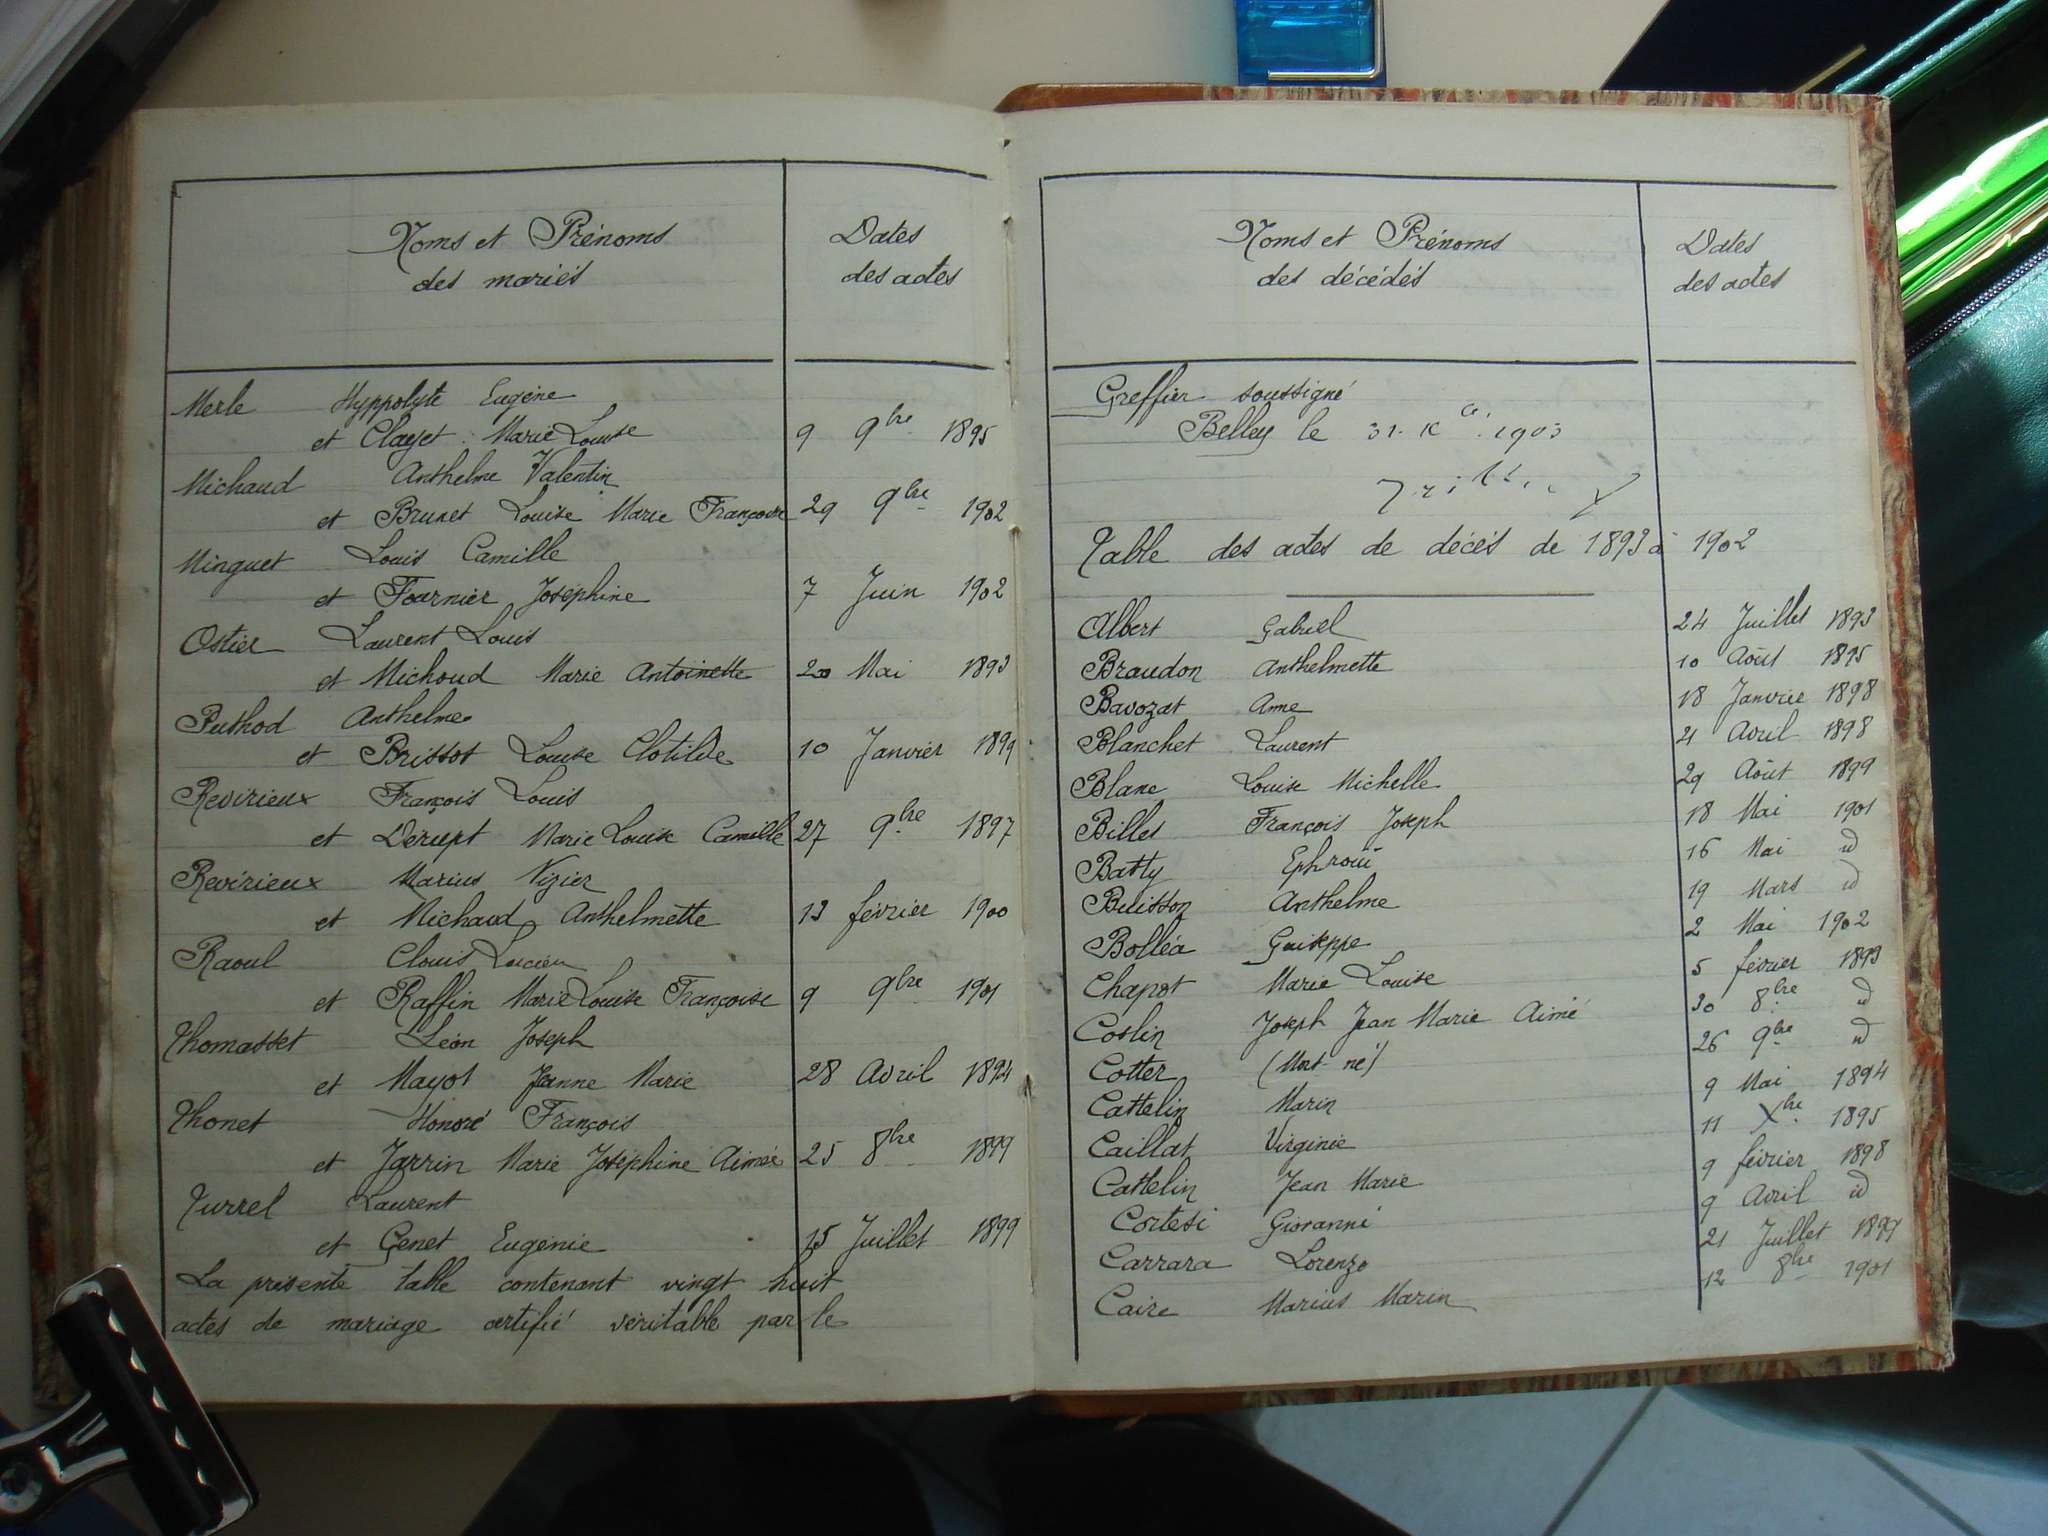 Noms et Prénoms
des mariés
Dates
des actes
Merle Hyppolyte Eugène
et Clayet Marie Louise 9 9bre 1895
Michaud Anthelme Valentin
et Brunet Louise Marie Françoise 29 9bre 1902
Minguet Louis Camille
et Fournier Joséphine 7 Juin 1902
Ostier Laurent Louis
et Michoud Marie Antoinette 20 Mai 1893
Puthod Anthelme
et Brissot Louise Clotilde 10 Janvier 1899
Revirieux François Louis
et Derupt Marie Louise Camille 27 9bre 1897
Revirieux Marius Vizier
et Michaud Anthelmette 13 février 1900
Raoul Clovis Lucien
et Raffin Marie Louise Françoise 9 9bre 1901
Thomasset Léon Joseph
et Mayot Jeanne Marie 28 Avril 1894
Thonet Honoré François
et Jarrin Marie Joséphine Aimée 25 8bre 1899
Turrel Laurent
et Genet Eugénie 15 Juillet 1899
La présente table contenant vingt huit
actes de mariage certifié véritable par le
Noms et Prénoms
des décédés
Dates
des actes
Greffier soussigné
Belley le 31 1903
Table des actes de décès de 1893 à 1902
Albert Gabriel 24 Juillet 1893
Braudon Anthelmette 10 Août 1895
Bavozat Anne 18 Janvier 1898
Blanchet Laurent 21 Avril 1898
Blanc Louise Michelle 29 Août 1899
Billet François Joseph 18 Mai 1901
Batty 16 Mai id
Buisson Anthelme 19 Mars id
Bolléa Guiseppe 2 Mai 1902
Chapot Marie Louise 5 février 1893
Coslin Joseph Jean Marie Aimé 30 8bre id
Cotter (Mort-né) 26 9bre id
Cattelin Marin 9 Mai 1894
Caillat Virginie 11 Xbre 1895
Cattelin Jean Marie 9 février 1898
Cortesi Giovanni 9 Avril id
Carrara Lorenzo 21 Juillet 1899
Caire Marius Marin 12 8bre 1901